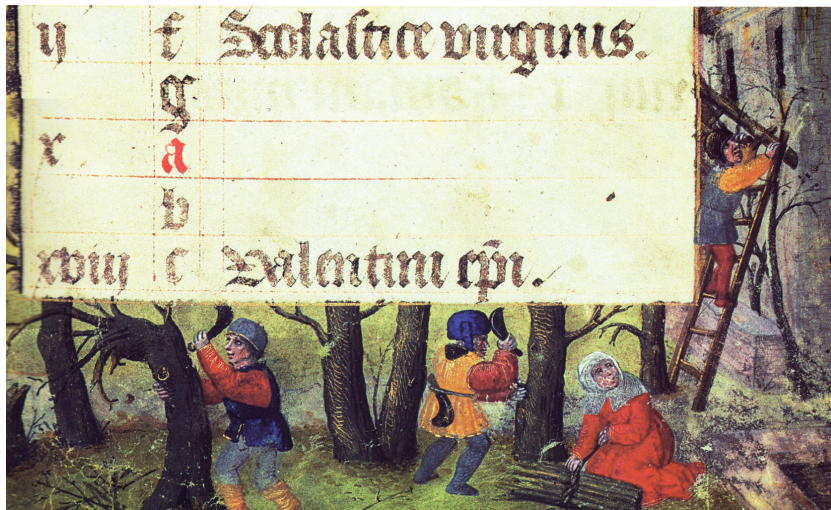 ij f Scolaſtice virginis.
g
x a
b
xviij c Valentini ep̄i.